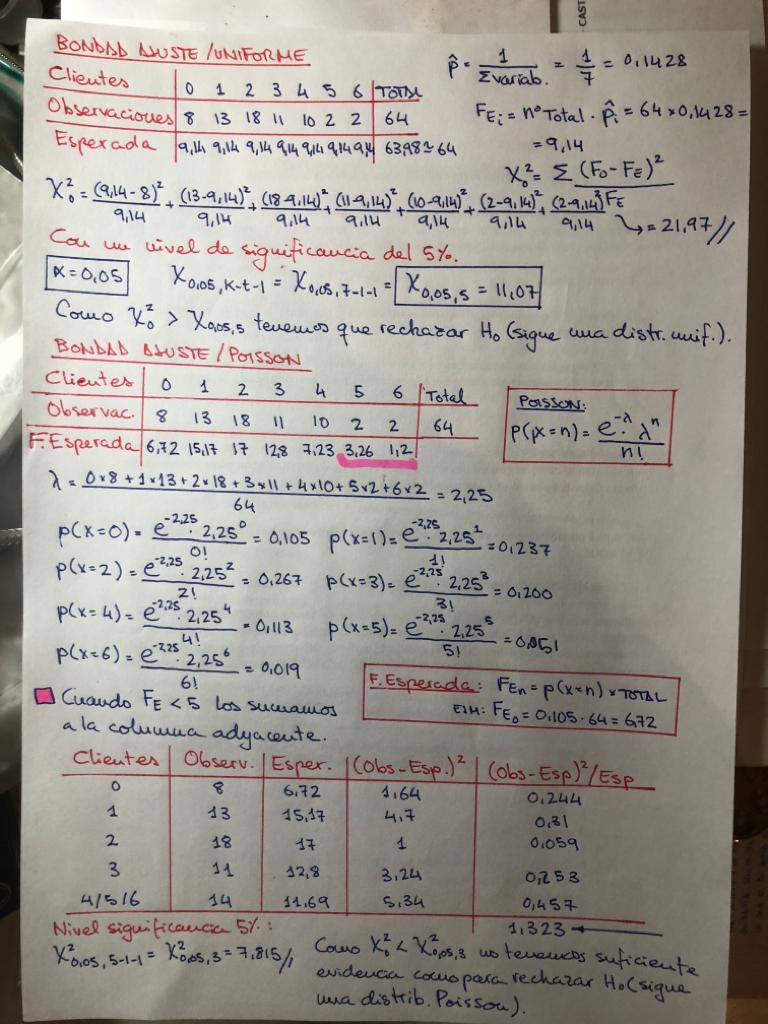 BONDAD AJUSTE / UNIFORME
Clientes 0 1 2 3 4 5 6 TOTAL
Observaciones 8 13 18 11 10 2 2 64
Esperada 9,14 9,14 9,14 9,14 9,14 9,14 9,14 63,98≈64
p̂ = 1/Σvariab. = 1/7 = 0,1428
FEi = nº Total · p̂i = 64 × 0,1428 =
= 9,14
X₀² = Σ (Fo - FE)² / FE
X₀² = (9,14-8)²/9,14 + (13-9,14)²/9,14 + (18-9,14)²/9,14 + (11-9,14)²/9,14 + (10-9,14)²/9,14 + (2-9,14)²/9,14 + (2-9,14)²/9,14 ↳ = 21,97 //
Con un nivel de significancia del 5%.
α = 0,05 X₀,₀₅,K-t-1 = X₀,₀₅,7-1-1 = X₀,₀₅,₅ = 11,07
Como X₀² > X₀,₀₅,₅ tenemos que rechazar H₀ (sigue una distr. unif.).
BONDAD AJUSTE / POISSON
Clientes 0 1 2 3 4 5 6 Total
Observac. 8 13 18 11 10 2 2 64
F.Esperada 6,72 15,17 17 12,8 7,23 3,26 1,2
POISSON:
p(x=n) = e^-λ · λ^n / n!
λ = 0×8 + 1×13 + 2×18 + 3×11 + 4×10 + 5×2 + 6×2 / 64 = 2,25
p(x=0) = e^-2,25 · 2,25⁰ / 0! = 0,105 p(x=1) = e^-2,25 · 2,25¹ / 1! = 0,237
p(x=2) = e^-2,25 · 2,25² / 2! = 0,267 p(x=3) = e^-2,25 · 2,25³ / 3! = 0,200
p(x=4) = e^-2,25 · 2,25⁴ / 4! = 0,113 p(x=5) = e^-2,25 · 2,25⁵ / 5! = 0,051
p(x=6) = e^-2,25 · 2,25⁶ / 6! = 0,019
F.Esperada: FEn = p(x=n) × TOTAL
FE₀ = 0,105 · 64 = 6,72
Cuando FE < 5 los sumamos
a la columna adyacente.
Clientes Observ. Esper. (Obs-Esp.)² (Obs-Esp)²/Esp
0 8 6,72 1,64 0,244
1 13 15,17 4,7 0,31
2 18 17 1 0,059
3 11 12,8 3,24 0,253
4/5/6 14 11,69 5,34 0,457
1,323 ←
Nivel significancia 5%:
X²₀,₀₅,5-1-1 = X²₀,₀₅,₃ = 7,815 //
Como X₀² < X²₀,₀₅,₃ no tenemos suficiente
evidencia como para rechazar H₀ (sigue
una distrib. Poisson).
CAST